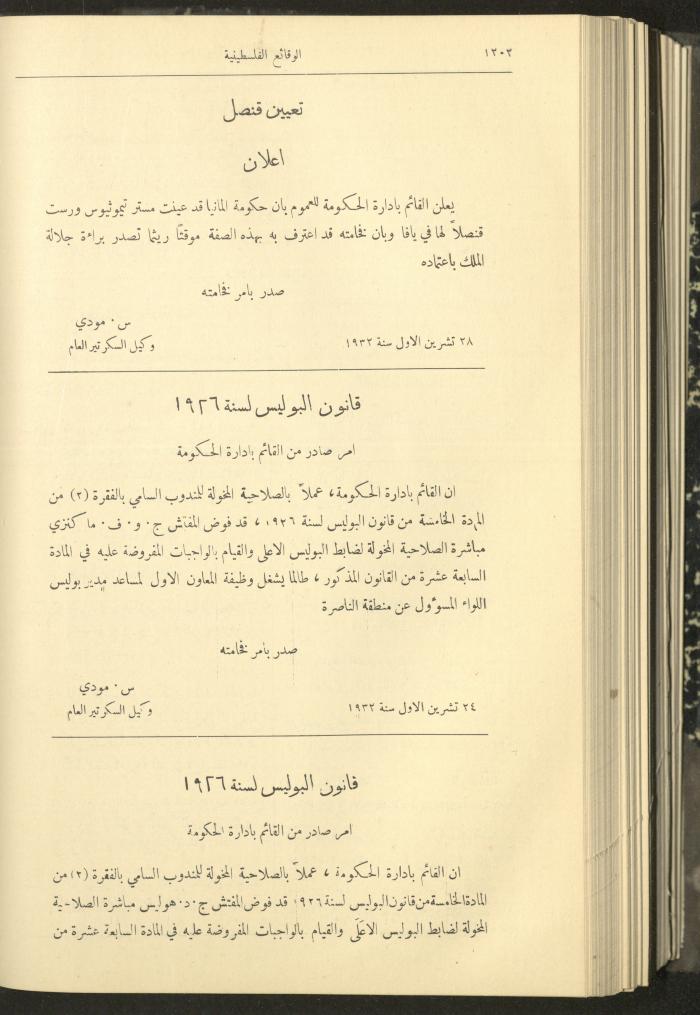 ١٢٠٢ الوقائع الفلسطينية
تعيين قنصل
اعلان
يعلن القائم بادارة الحكومة للعموم بان حكومة المانيا قد عينت مستر تيموثيوس ورست
قنصلاً لها في يافا وبان فخامته قد اعترف به بهذه الصفة موقتًا ريثما تصدر براءة جلالة
الملك باعتماده
صدر بامر فخامته
س. مودي
٢٨ تشرين الاول سنة ١٩٣٢ وكيل السكرتير العام
قانون البوليس لسنة ١٩٢٦
امر صادر من القائم بادارة الحكومة
ان القائم بادارة الحكومة، عملاً بالصلاحية المخولة للمندوب السامي بالفقرة (٢) من
المادة الخامسة من قانون البوليس لسنة ١٩٢٦، قد فوض المفتش ج. و. ف. ماكنزي
مباشرة الصلاحية المخولة لضابط البوليس الاعلى والقيام بالواجبات المفروضة عليه في المادة
السابعة عشرة من القانون المذكور، طالما يشغل وظيفة المعاون الاول لمساعد مدير بوليس
اللواء المسؤول عن منطقة الناصرة
صدر بامر فخامته
س. مودي
٢٤ تشرين الاول سنة ١٩٣٢ وكيل السكرتير العام
قانون البوليس لسنة ١٩٢٦
امر صادر من القائم بادارة الحكومة
ان القائم بادارة الحكومة، عملاً بالصلاحية المخولة للمندوب السامي بالفقرة (٢) من
المادة الخامسة من قانون البوليس لسنة ١٩٢٦ قد فوض المفتش ج. د. هوليس مباشرة الصلاحية
المخولة لضابط البوليس الاعلى والقيام بالواجبات المفروضة عليه في المادة السابعة عشرة من